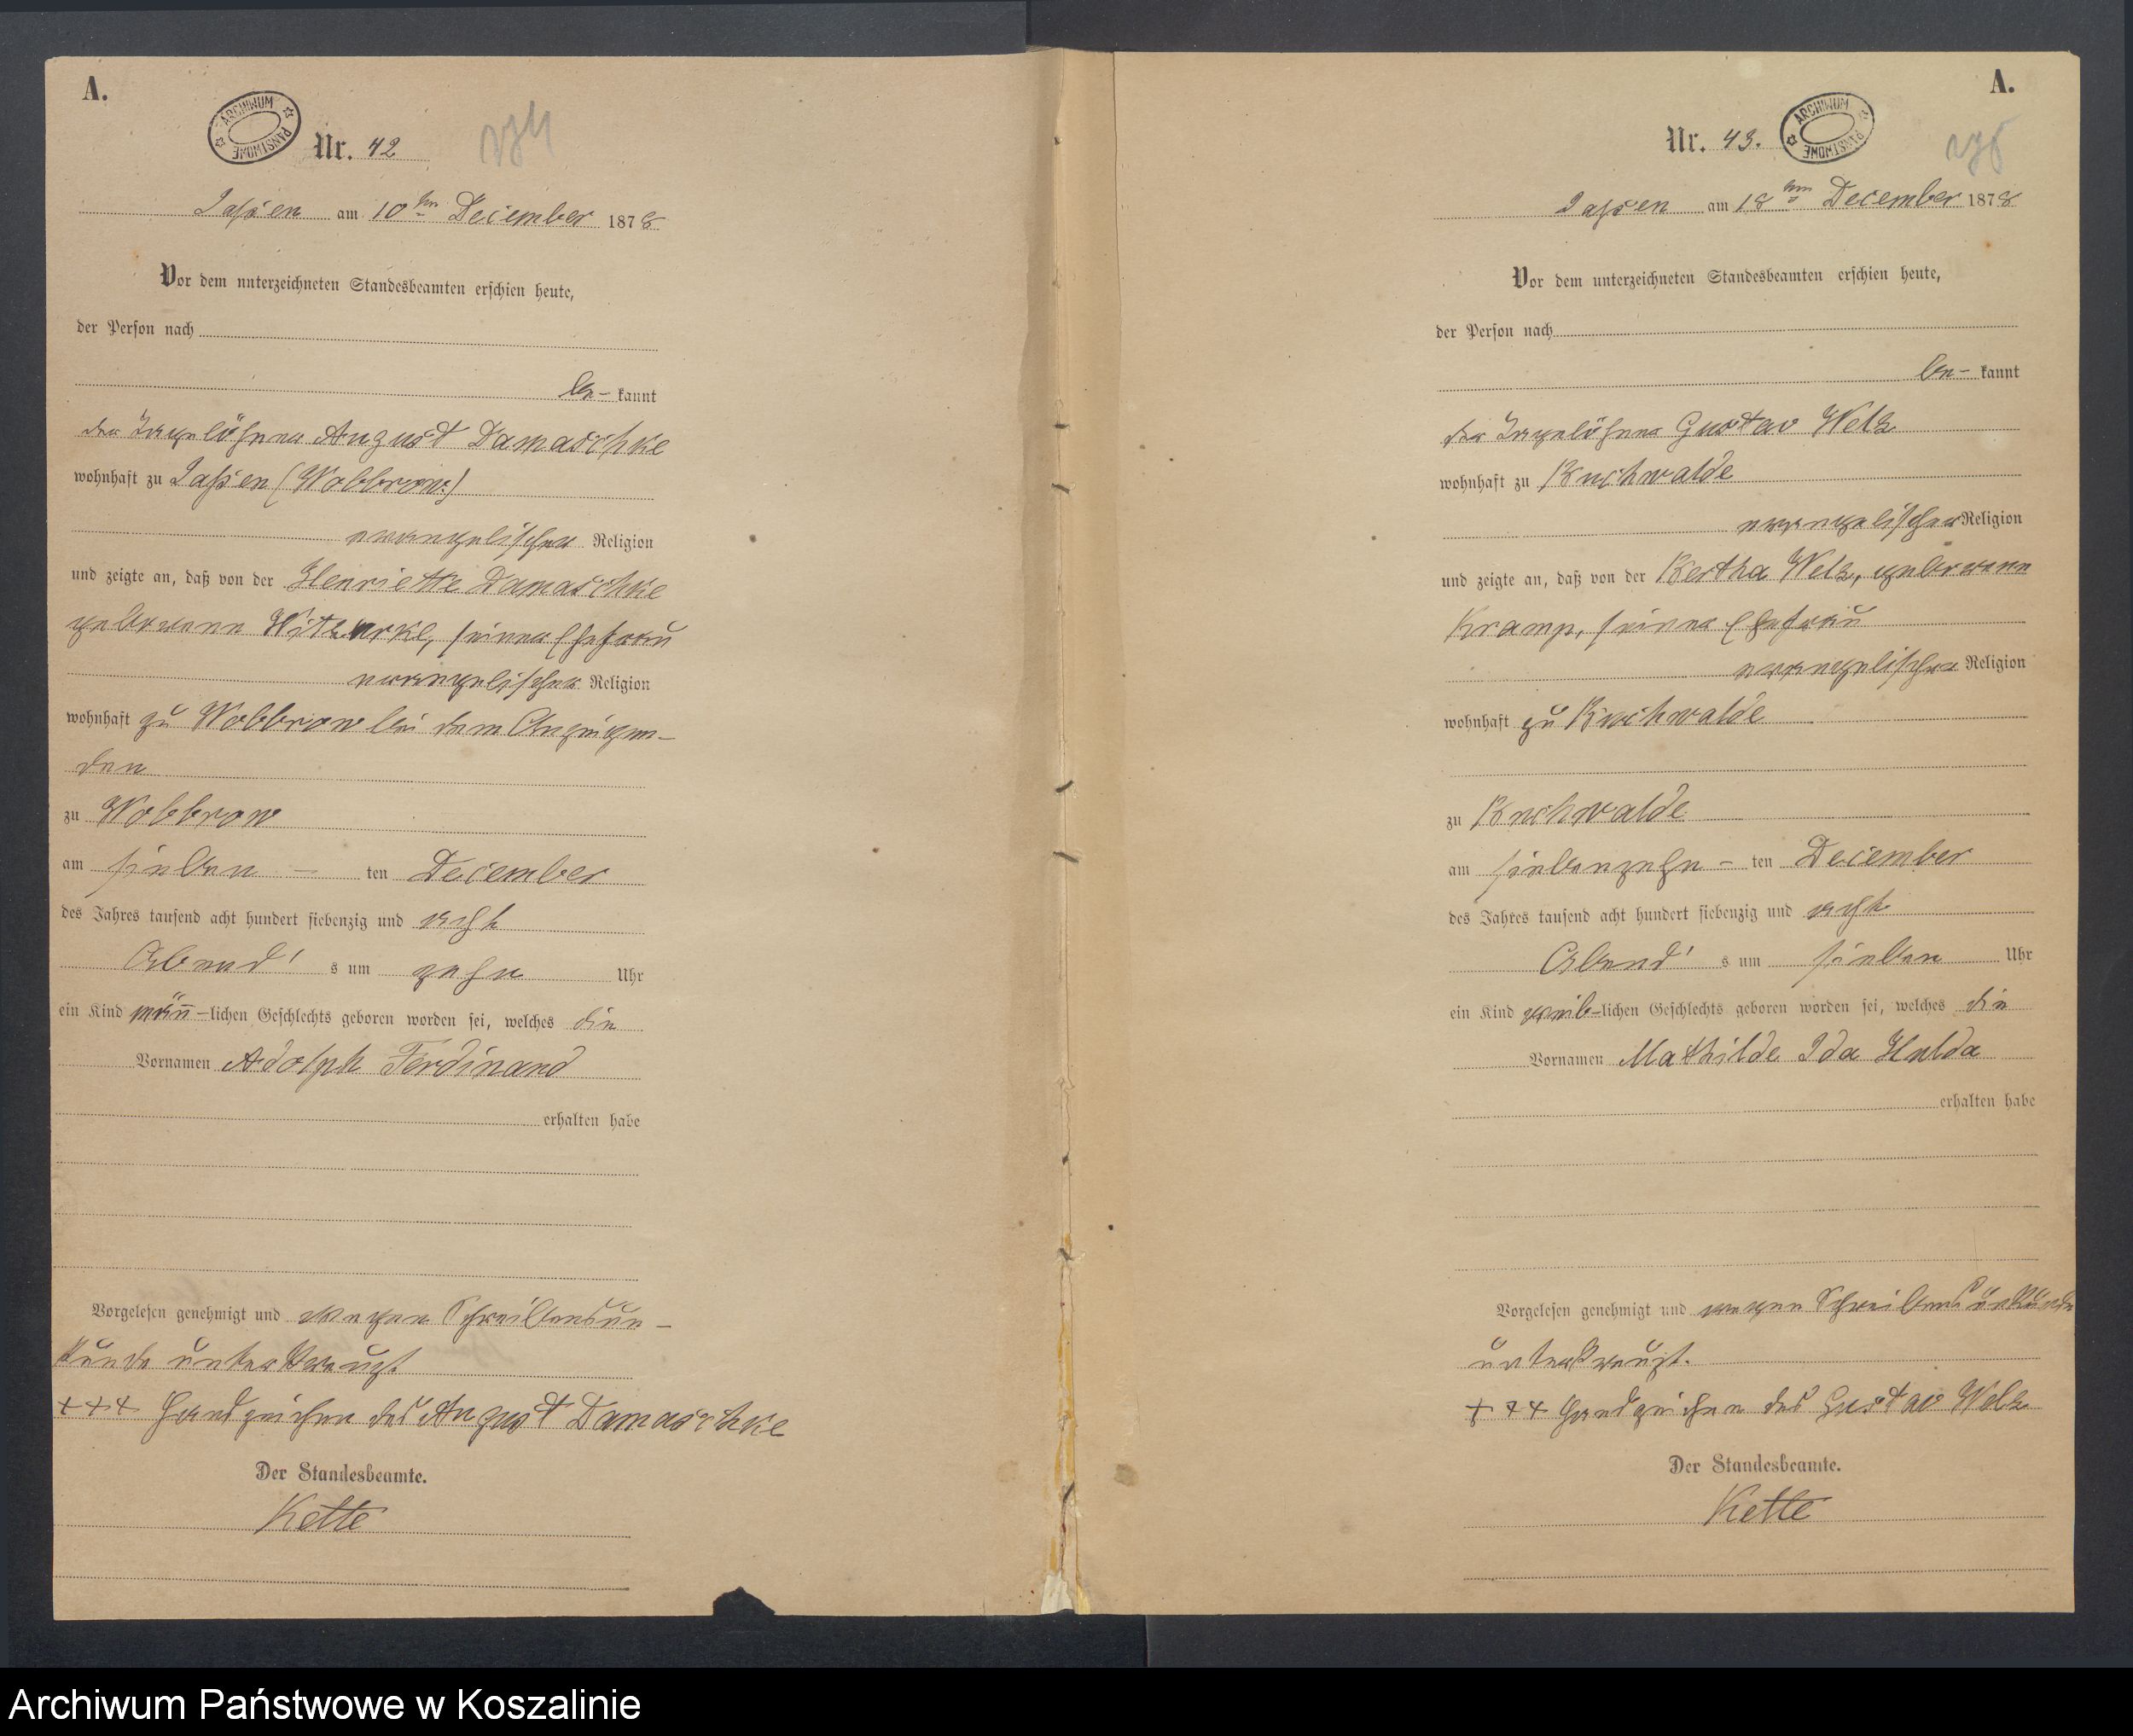 A.
ARCHIWUM PAŃSTWOWE
Nr. 42
Jassen am 10ten December 1878
Vor dem unterzeichneten Standesbeamten erschien heute,
der Person nach
be- kannt
der Tagelöhner August Damaschke
wohnhaft zu Jassen (Wobbrow)
evangelischer Religion
und zeigte an, daß von der Henriette Damaschke
geborene seiner Ehefrau
evangelischer Religion
wohnhaft zu Wobbrow bei dem Anzeigen-
den
zu Wobbrow
am sieben - ten December
des Jahres tausend acht hundert siebenzig und acht
Abend's um zehn Uhr
ein Kind männ-lichen Geschlechts geboren worden sei, welches die
Vornamen Adolph Ferdinand
erhalten habe
Vorgelesen genehmigt und wegen Schreibensun-
kunde unterkreuzt
+++ Handzeichen des August Damaschke
Der Standesbeamte.
Kette
A.
Nr. 43.
ARCHIWUM PAŃSTWOWE
Jassen am 18ten December 1878
Vor dem unterzeichneten Standesbeamten erschien heute,
der Person nach
be- kannt
der Tagelöhner Gustav Welz
wohnhaft zu Buchwalde
evangelischer Religion
und zeigte an, daß von der Bertha Welz, geborene
Kramp, seiner Ehefrau
evangelischer Religion
wohnhaft zu Buchwalde
zu Buchwalde
am siebenzehn - ten December
des Jahres tausend acht hundert siebenzig und acht
Abend's um sieben Uhr
ein Kind weib-lichen Geschlechts geboren worden sei, welches die
Vornamen Mathilde Ida Hulda
erhalten habe
Vorgelesen genehmigt und wegen Schreibensunkunde
unterkreuzt.
+++ Handzeichen des Gustav Welz
Der Standesbeamte.
Kette
Archiwum Państwowe w Koszalinie